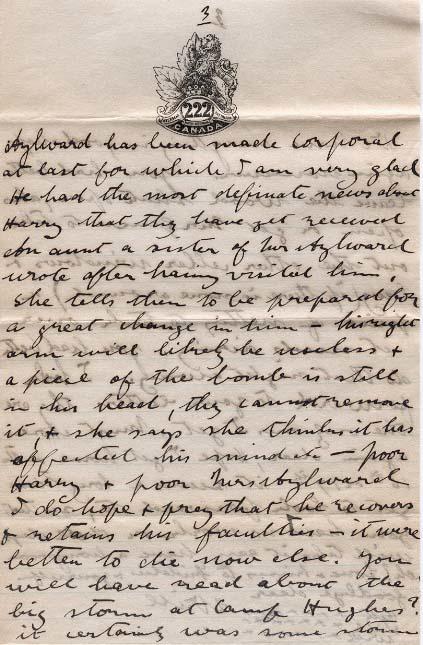 3
222
CANADA
Aylward has been made Corporal
at last for which I am very glad
He had the most definate news about
Harry that they have yet received
An aunt a sister of Mrs Aylward
wrote after having visited him,
she tells them to be prepared for
a great change in him – his right
arm will likely be useless +
a piece of the bomb is still
in his head, they cannot remove
it, + she says she thinks it has
affected his mind – poor
Harry + poor Mrs Aylward
I do hope + pray that he recovers
+ retains his faculties – it were
better to die now else. You
will have read about the
big storm at Camp Hughes?
it certainly was some storm